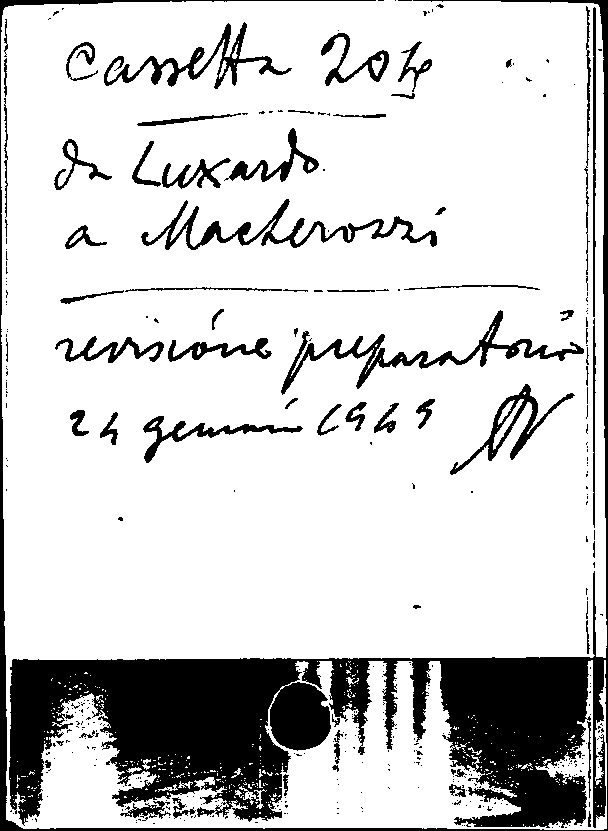 Cassetta 20
da Luxardo
a Macherozzi
revisione preparatoria
24 gennaio 1969